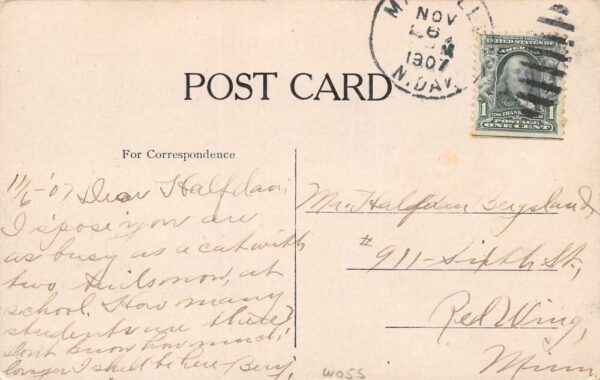 NOV
6
1907
N. DAK.
UNITED STATES OF AMERICA
POSTAGE
1 ONE CENT 1
POST CARD
For Correspondence
11/6-'07 Dear Halfdan:
I s'pose you are
as busy as a cat with
two tails now, at
school. How many
students are there?
don't know how much
longer I shall be here
Mr. Halfdan Bergsland,
# 911 - Sixth St.,
Red Wing,
Minn.
WOSS